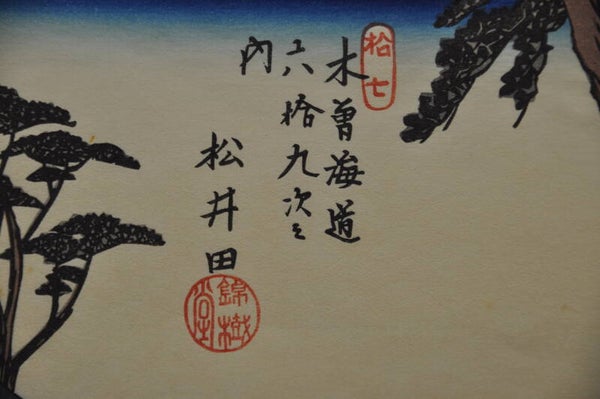 拾七
木曾海道
六拾九次之
内
松井田
錦樹堂